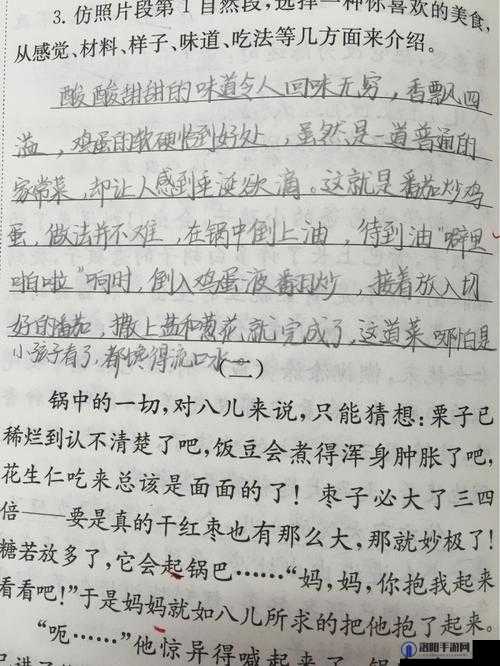 3. 仿照片段第1自然段,选择一种你喜欢的美食,
从感觉、材料、样子、味道、吃法等几方面来介绍。
酸酸甜甜的味道令人回味无穷，香飘四
溢，鸡蛋的软硬恰到好处，虽然是一道普通的
家常菜，却让人感到垂涎欲滴。这就是番茄炒鸡
蛋，做法并不难，在锅中倒上油，待到油“噼里
啪啦”响时，倒入鸡蛋液翻炒，接着放入切
好的番茄，撒上盐和葱花就完成了，这道菜哪怕是
小孩子看了，都馋得流口水。
(二)
锅中的一切,对八儿来说,只能猜想:栗子已
稀烂到认不清楚了吧,饭豆会煮得浑身肿胀了吧,
花生仁吃来总该是面面的了!枣子必大了三四
倍——要是真的干红枣也有那么大,那就妙极了!
糖若放多了,它会起锅巴……“妈,妈,你抱我起来
看看吧!”于是妈妈就如八儿所求的把他抱了起来。
“呃……”他惊异得喊起来了,锅
洛阳手游网